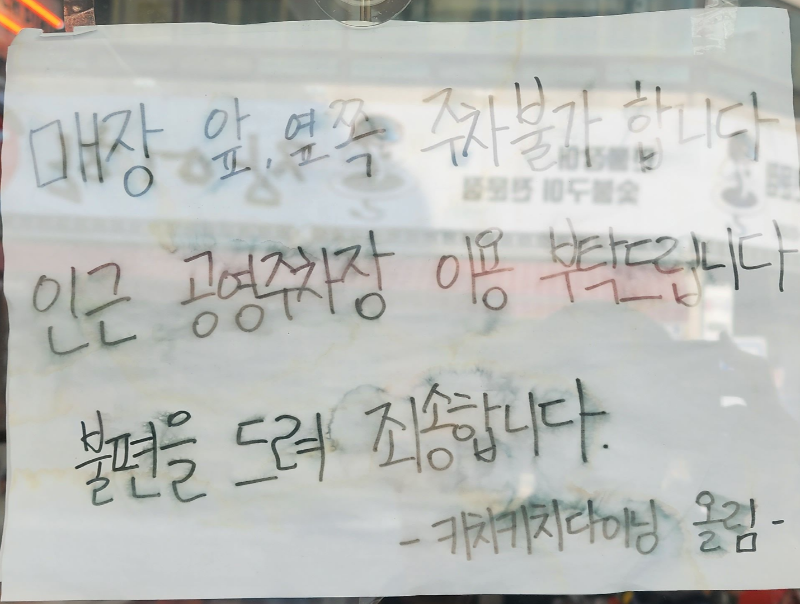 매장 앞, 옆쪽 주차불가 합니다
인근 공영주차장 이용 부탁드립니다
불편을 드려 죄송합니다.
- 키치키치다이닝 올림 -
숯불구이 전문점